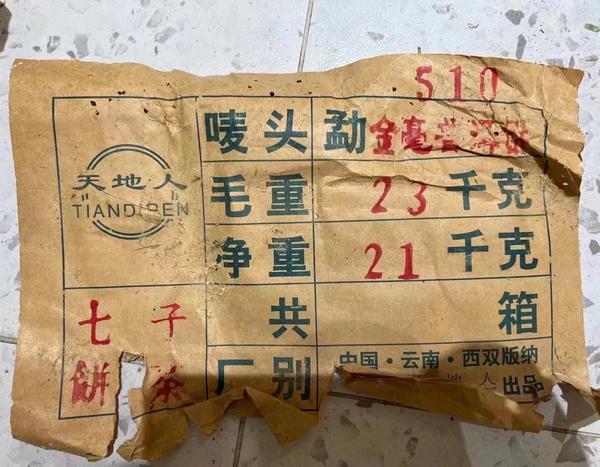 510
唛头 勐金毫普洱饼
天地人
"TIANDIREN"
毛重 23千克
净重 21千克
七子
餅茶
共 箱
厂别 中国·云南·西双版纳
地人出品